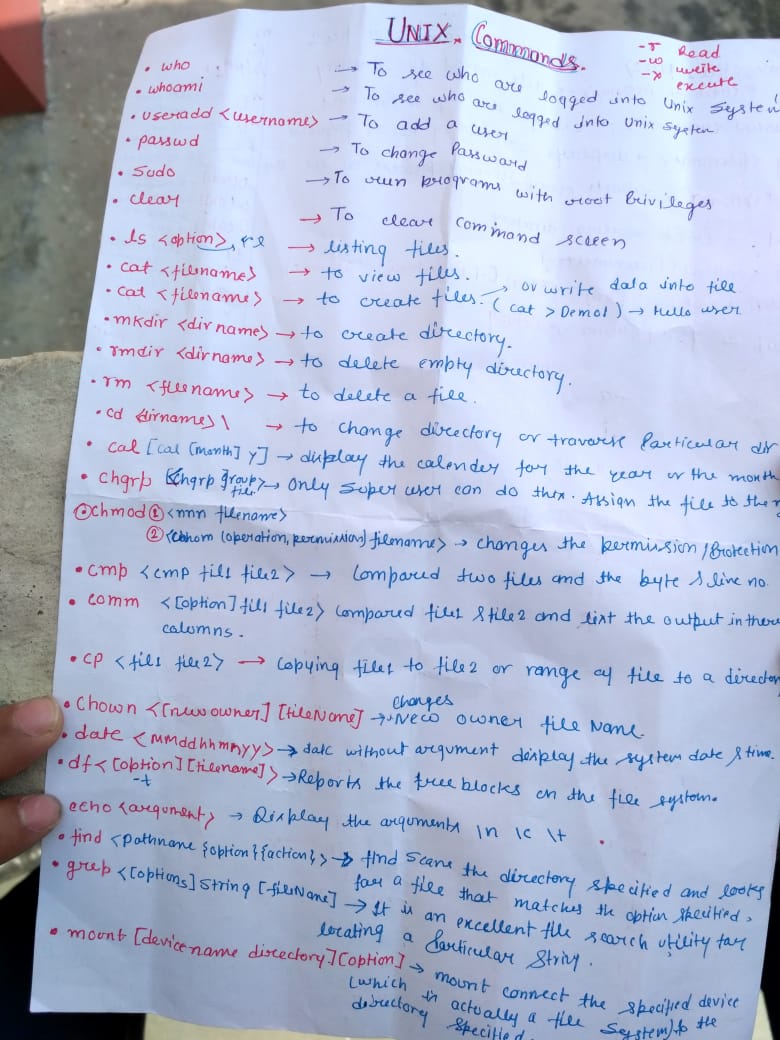 UNIX Commands.
-r Read
-w write
-x execute
• who → To see who are logged into Unix System
• whoami → To see who are logged into Unix System
• useradd <username> → To add a user
• passwd → To change Password
• sudo → To run programs with root Privileges
• clear → To clear command screen
• ls <option> → listing files.
• cat <filename> → to view files. → or write data into file
• cat <filename> → to create files. (cat > Demo1) → Hello user
• mkdir <dir name> → to create directory.
• rmdir <dirname> → to delete empty directory.
• rm <filename> → to delete a file.
• cd <dirname>\ → to change directory or traverse Particular dir
• cal [cal [month] y] → display the calender for the year or the month
• chgrp <chgrp group file> → only super user can do this. Assign the file to the
• chmod ① <nnn filename>
② < (operation, permission) filename> → changes the permission / Protection
• cmp <cmp file1 file2> → Compared two files and the byte & line no.
• comm <[option] file1 file2> compared file1 & file2 and list the output in there
columns.
• cp <file1 file2> → Copying file1 to file2 or range of file to a director
• Chown <[new owner] [fileName] → changes New owner file Name.
• date <mmddhhmmyy> → date without argument display the system date & time.
• df < [option] [filename]> → Reports the free blocks on the file system.
-t
echo <argument> → Display the arguments In \c \t
• find <pathname {option} {action}> → find scans the directory specified and looks
for a file that matches the option specified.
• grep <[options] string [fileName] → It is an excellent file search utility for
locating a particular string.
• mount [device name directory] [option] → mount connect the specified device
(which is actually a file system) to the
directory specified.